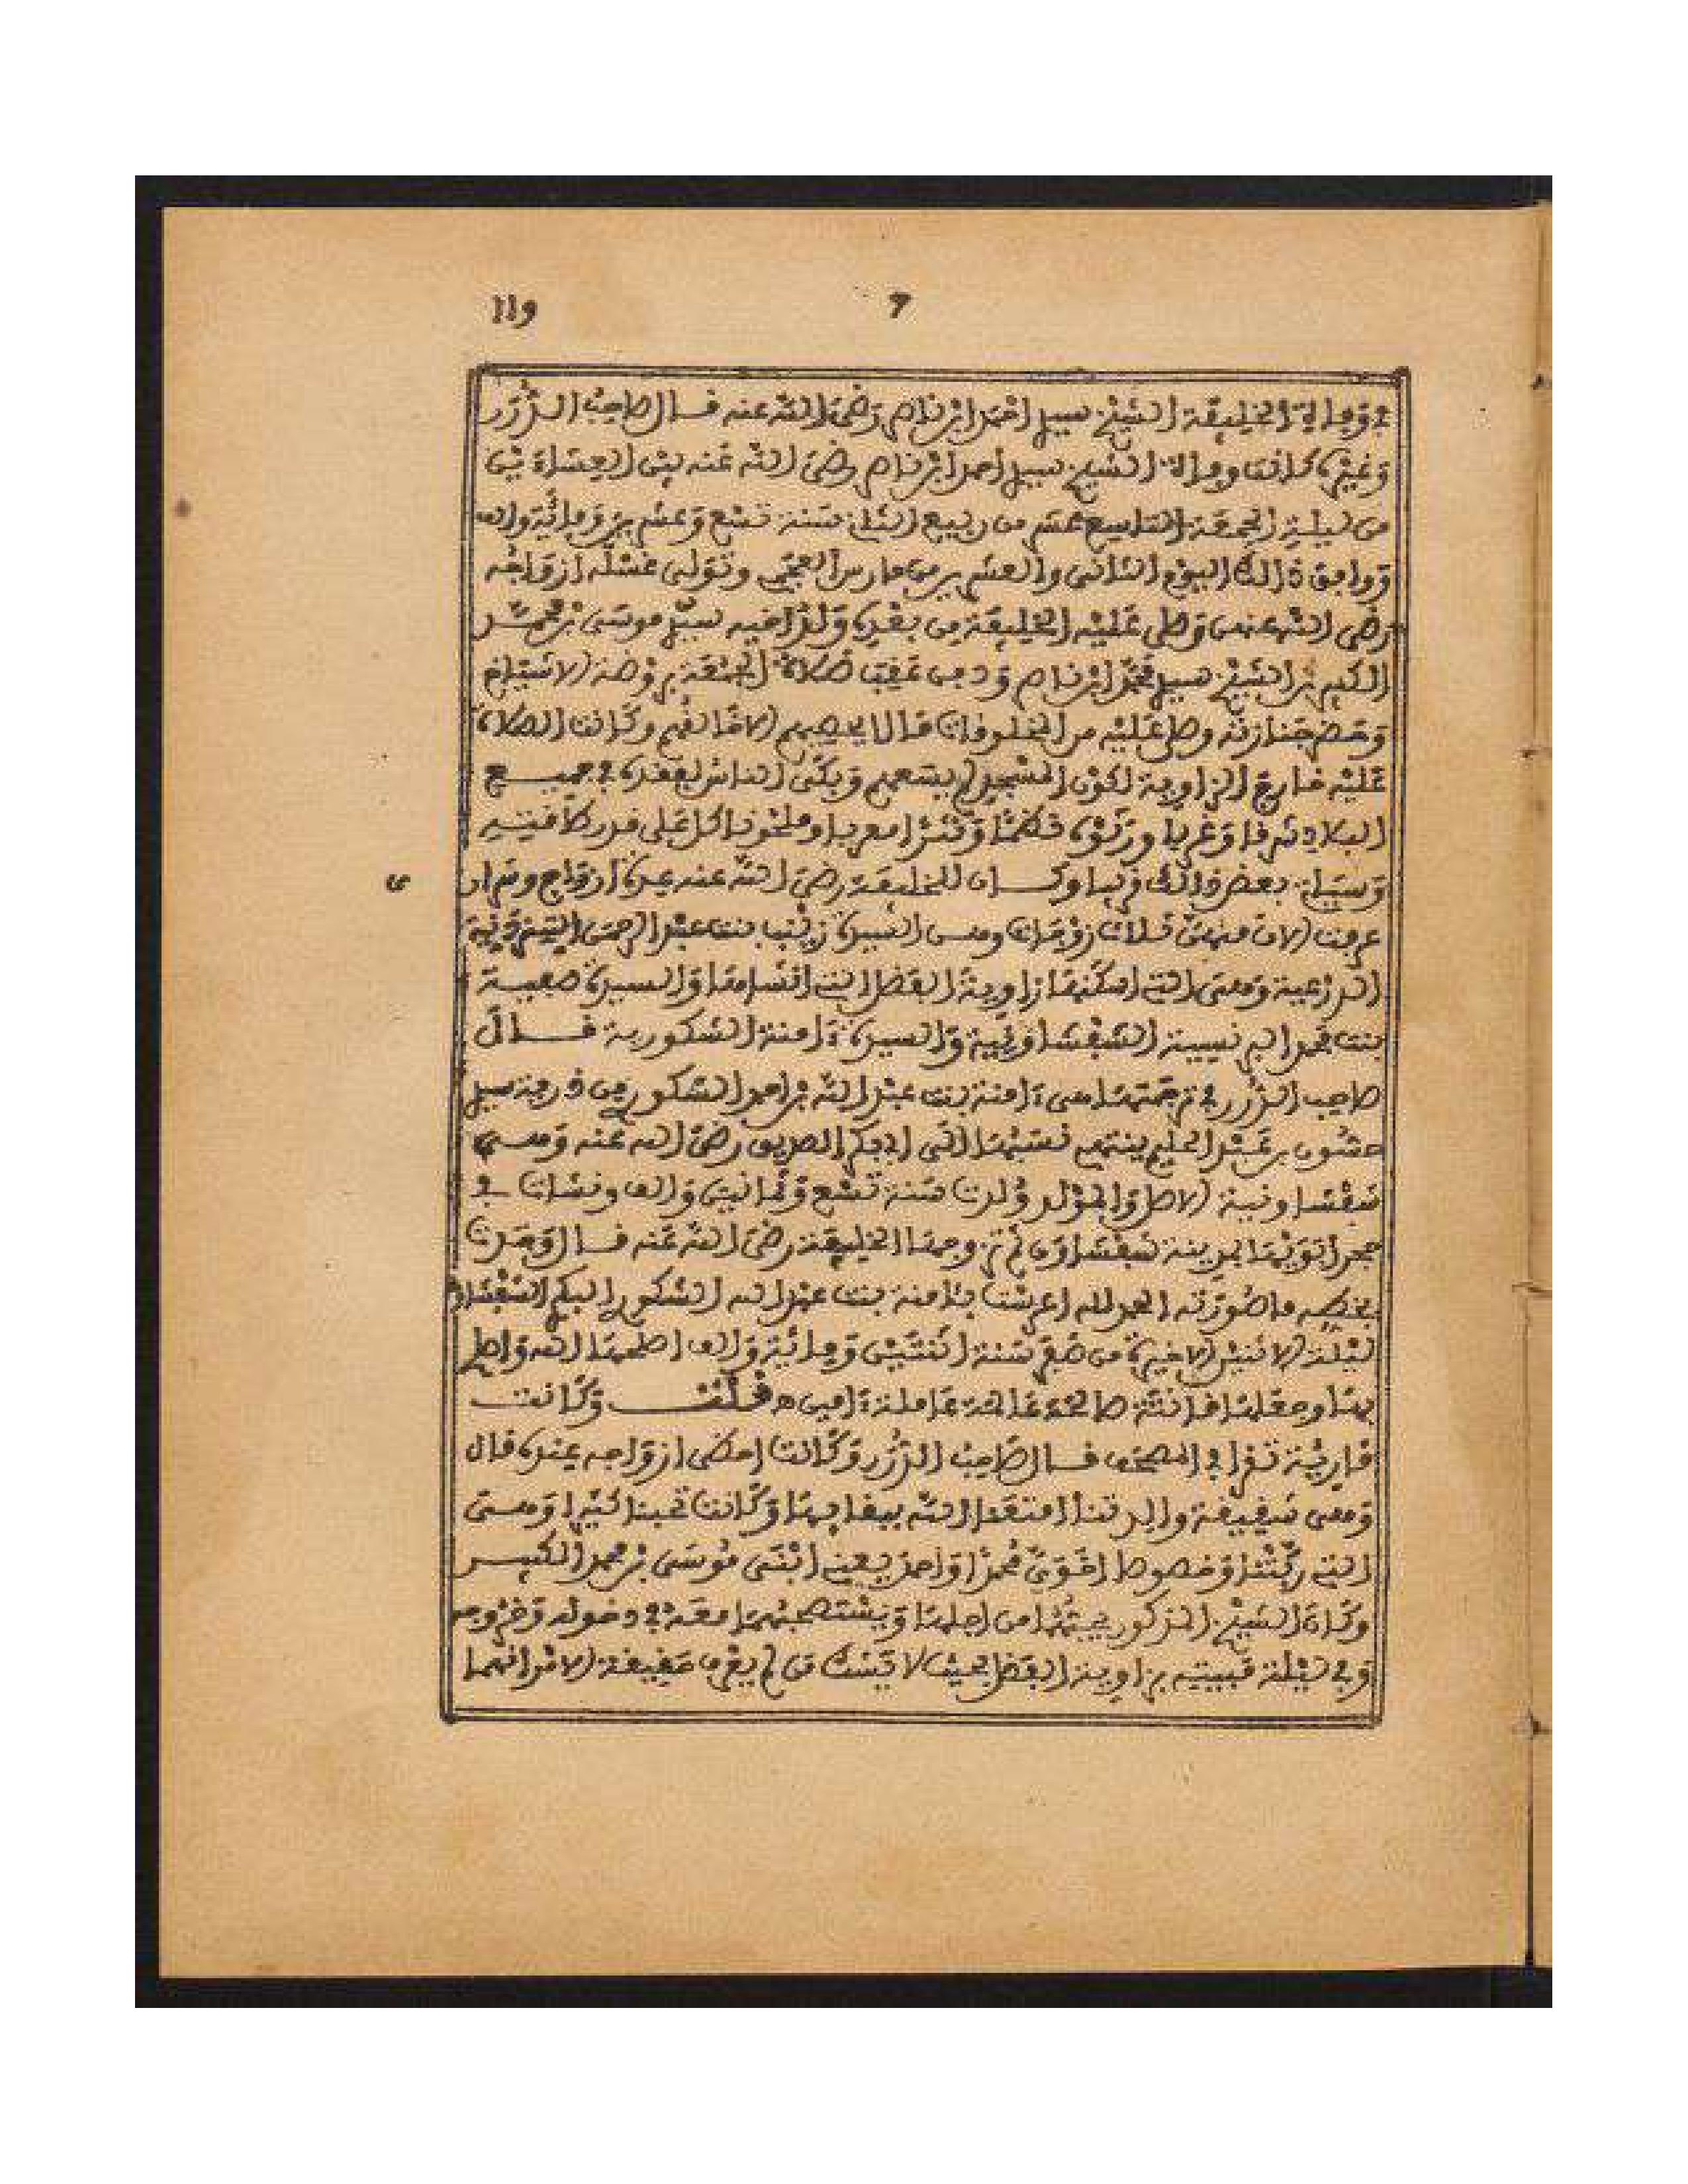 119
7
في وفاة الخليفة الشيخ سيدي احمد ابن ناصر رضي الله عنه قال صاحب الدرر
وغيره كانت وفاة الشيخ سيدي احمد ابن ناصر رضي الله عنه بين العشاءين
من ليلة الجمعة التاسع عشر من ربيع الثاني سنة تسع وعشرين ومائة والف
ووافق ذالك اليوم الثاني والعشرين من مارس العجمي وتولى غسله ازواجه
رضي الله عنهن وصلى عليه الخليفة من بعده ولد اخيه سيدي موسى بن محمد
الكبير بن الشيخ سيدي محمد ابن ناصر ودفن عقب صلاة الجمعة بروضة الاشياخ
وحضر جنازته وصلى عليه من المخلوفات مالا يحصيهم الا خالقهم وكانت الصلاة
عليه خارج الزاوية لكون المسجد لم يسعهم وبكى الناس لفقده في جميع
البلاد شرقا وغربا ورثوه نظما ونثرا معربا وملحونا كل على قدر طاقته
وسياتي بعض ذالك قريبا وكان للخليفة رضي الله عنه عدة ازواج وسراري
عرفت الان منهن ثلاث زوجات وهن السيدة زينب بنت عبد الرحمن
الدرعية وهي التي اسكنها زاوية الفضل التي انشاها والسيدة صفية
بنت محمد البرنسية الشفشاونية والسيدة ءامنة الشكورية قال
صاحب الدرر في ترجمتها هي ءامنة بنت عبد الله بن احمد الشكوري من ذرية سيدي
حسون بن عبد الحليم ينتهي نسبها الى ابي بكر الصديق رضي الله عنه وهي
شفشاونية الاصل والمولد ولدت سنة تسع وثمانين والف ونشات في
حجر ابويها بمدينة شفشاون ثم تزوجها الخليفة رضي الله عنه قال وجدت
بخطه ما صورته الحمد لله اعرست بئامنة بنت عبد الله الشكوري البكر الشفشاونية
ليلة الاثنين الاخيرة من صفر سنة اثنتين ومائة والف اصلحها الله واصلح
بها وجعلها قانتة صالحة عالمة عاملة ءامين ه قلت وكانت
قارئة تقرا في المصحف قال صاحب الدرر وكانت احظى ازواجه عنده قال
وهي شقيقة والدتنا امتعنا الله ببقايها وكانت تحبنا كثيرا وهي
التي ربتنا وخصوصا اخوي محمدا واحمد يعني ابني موسى بن محمد الكبير
وكان الشيخ المذكور يحبهما من اجلها ويستصحبهما معه في دخوله وخروجه
وفي ليلة مبيته بزاوية الفضل بحيث لا يشك من لم يعرف حقيقة الامر انهما